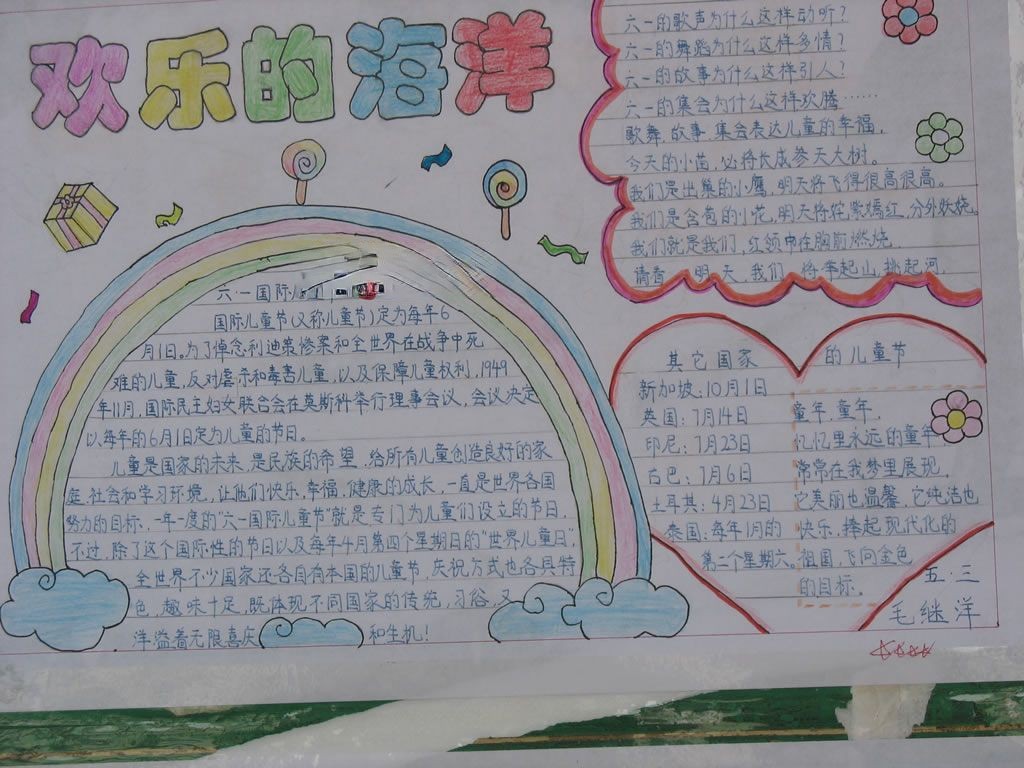 欢乐的海洋
六·一国际儿
国际儿童节(又称儿童节)定为每年6
月1日。为了悼念利迪策惨案和全世界在战争中死
难的儿童,反对虐杀和毒害儿童,以及保障儿童权利,1949
年11月,国际民主妇女联合会在莫斯科举行理事会议,会议决定
以每年的6月1日定为儿童的节日。
儿童是国家的未来,是民族的希望,给所有儿童创造良好的家
庭、社会和学习环境,让他们快乐,幸福,健康的成长,一直是世界各国
努力的目标,一年一度的"六一国际儿童节"就是专门为儿童们设立的节日,
不过,除了这个国际性的节日以及每年4月第四个星期日的"世界儿童日",
全世界不少国家还各自有本国的儿童节,庆祝方式也各具特
色,趣味十足,既体现不同国家的传统,习俗,又
洋溢着无限喜庆 和生机!
六一的歌声为什么这样动听?
六一的舞蹈为什么这样多情?
六一的故事为什么这样引人?
六一的集会为什么这样欢腾……
歌舞,故事,集会表达儿童的幸福,
今天的小苗,必将长成参天大树。
我们是出巢的小鹰,明天将飞得很高很高。
我们是含苞的小花,明天将姹紫嫣红,分外妖娆。
我们就是我们,红领巾在胸前燃烧,
请看,明天,我们将举起山,挑起河.
其它国家 的儿童节
新加坡:10月1日
英国:7月14日
印尼:7月23日
古巴:7月6日
土耳其:4月23日
泰国:每年1月的
第二个星期六。
童年,童年,
忆忆里永远的童年
常常在我梦里展现,
它美丽也温馨,它纯洁也
快乐,捧起现代化的
祖国,飞向金色
的目标,
五.三
毛继洋